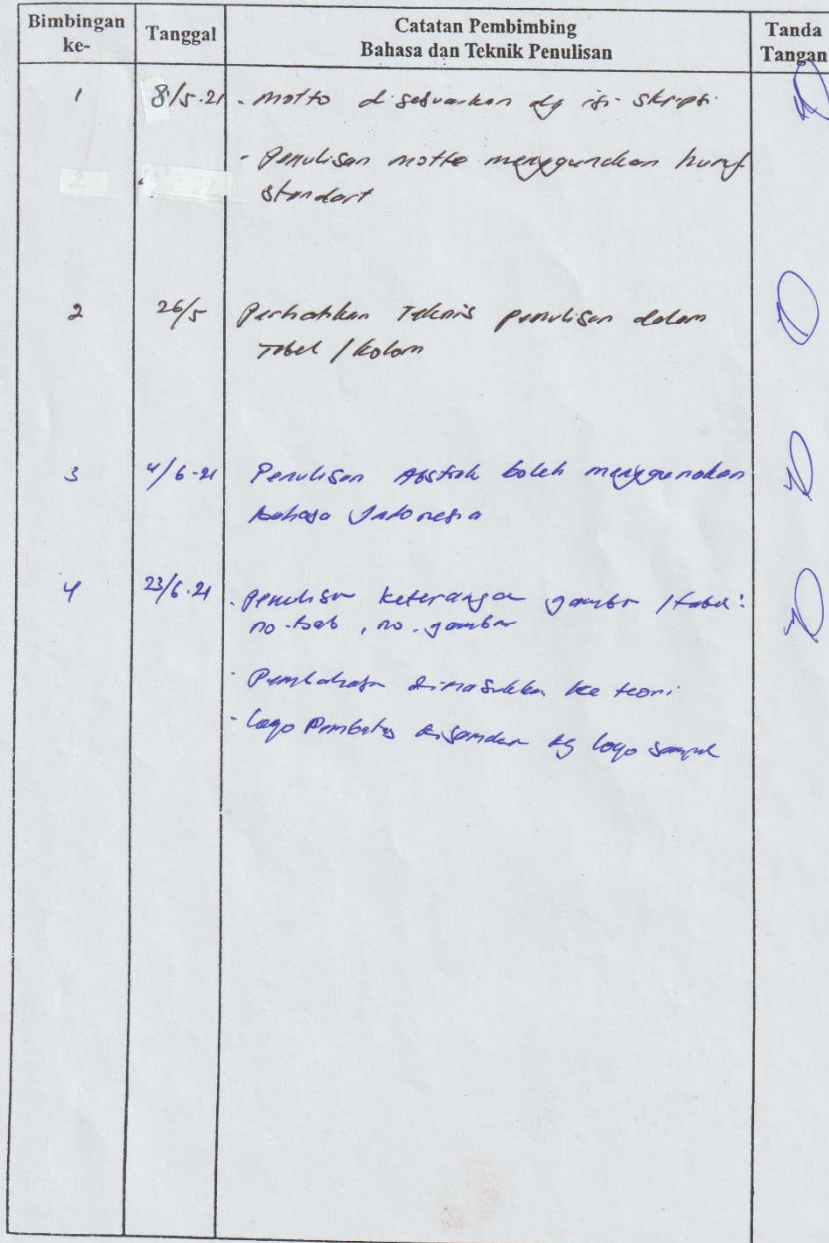 Bimbingan ke- Tanggal Catatan Pembimbing Bahasa dan Teknik Penulisan Tanda Tangan
1 8/5-21 - Motto disesuaikan dg isi skripsi
- Penulisan motto menggunakan huruf
standart
2 26/5 Perhatikan Teknis penulisan dalam
Tabel / kolom
3 4/6-21 Penulisan Abstrak boleh menggunakan
Bahasa Indonesia
4 23/6-21 - Penulisan keterangan gambar / tabel:
no-bab, no. gambar
- Pembahasan dimasukkan ke teori
- Logo Pembatas disamakan dg logo sampul